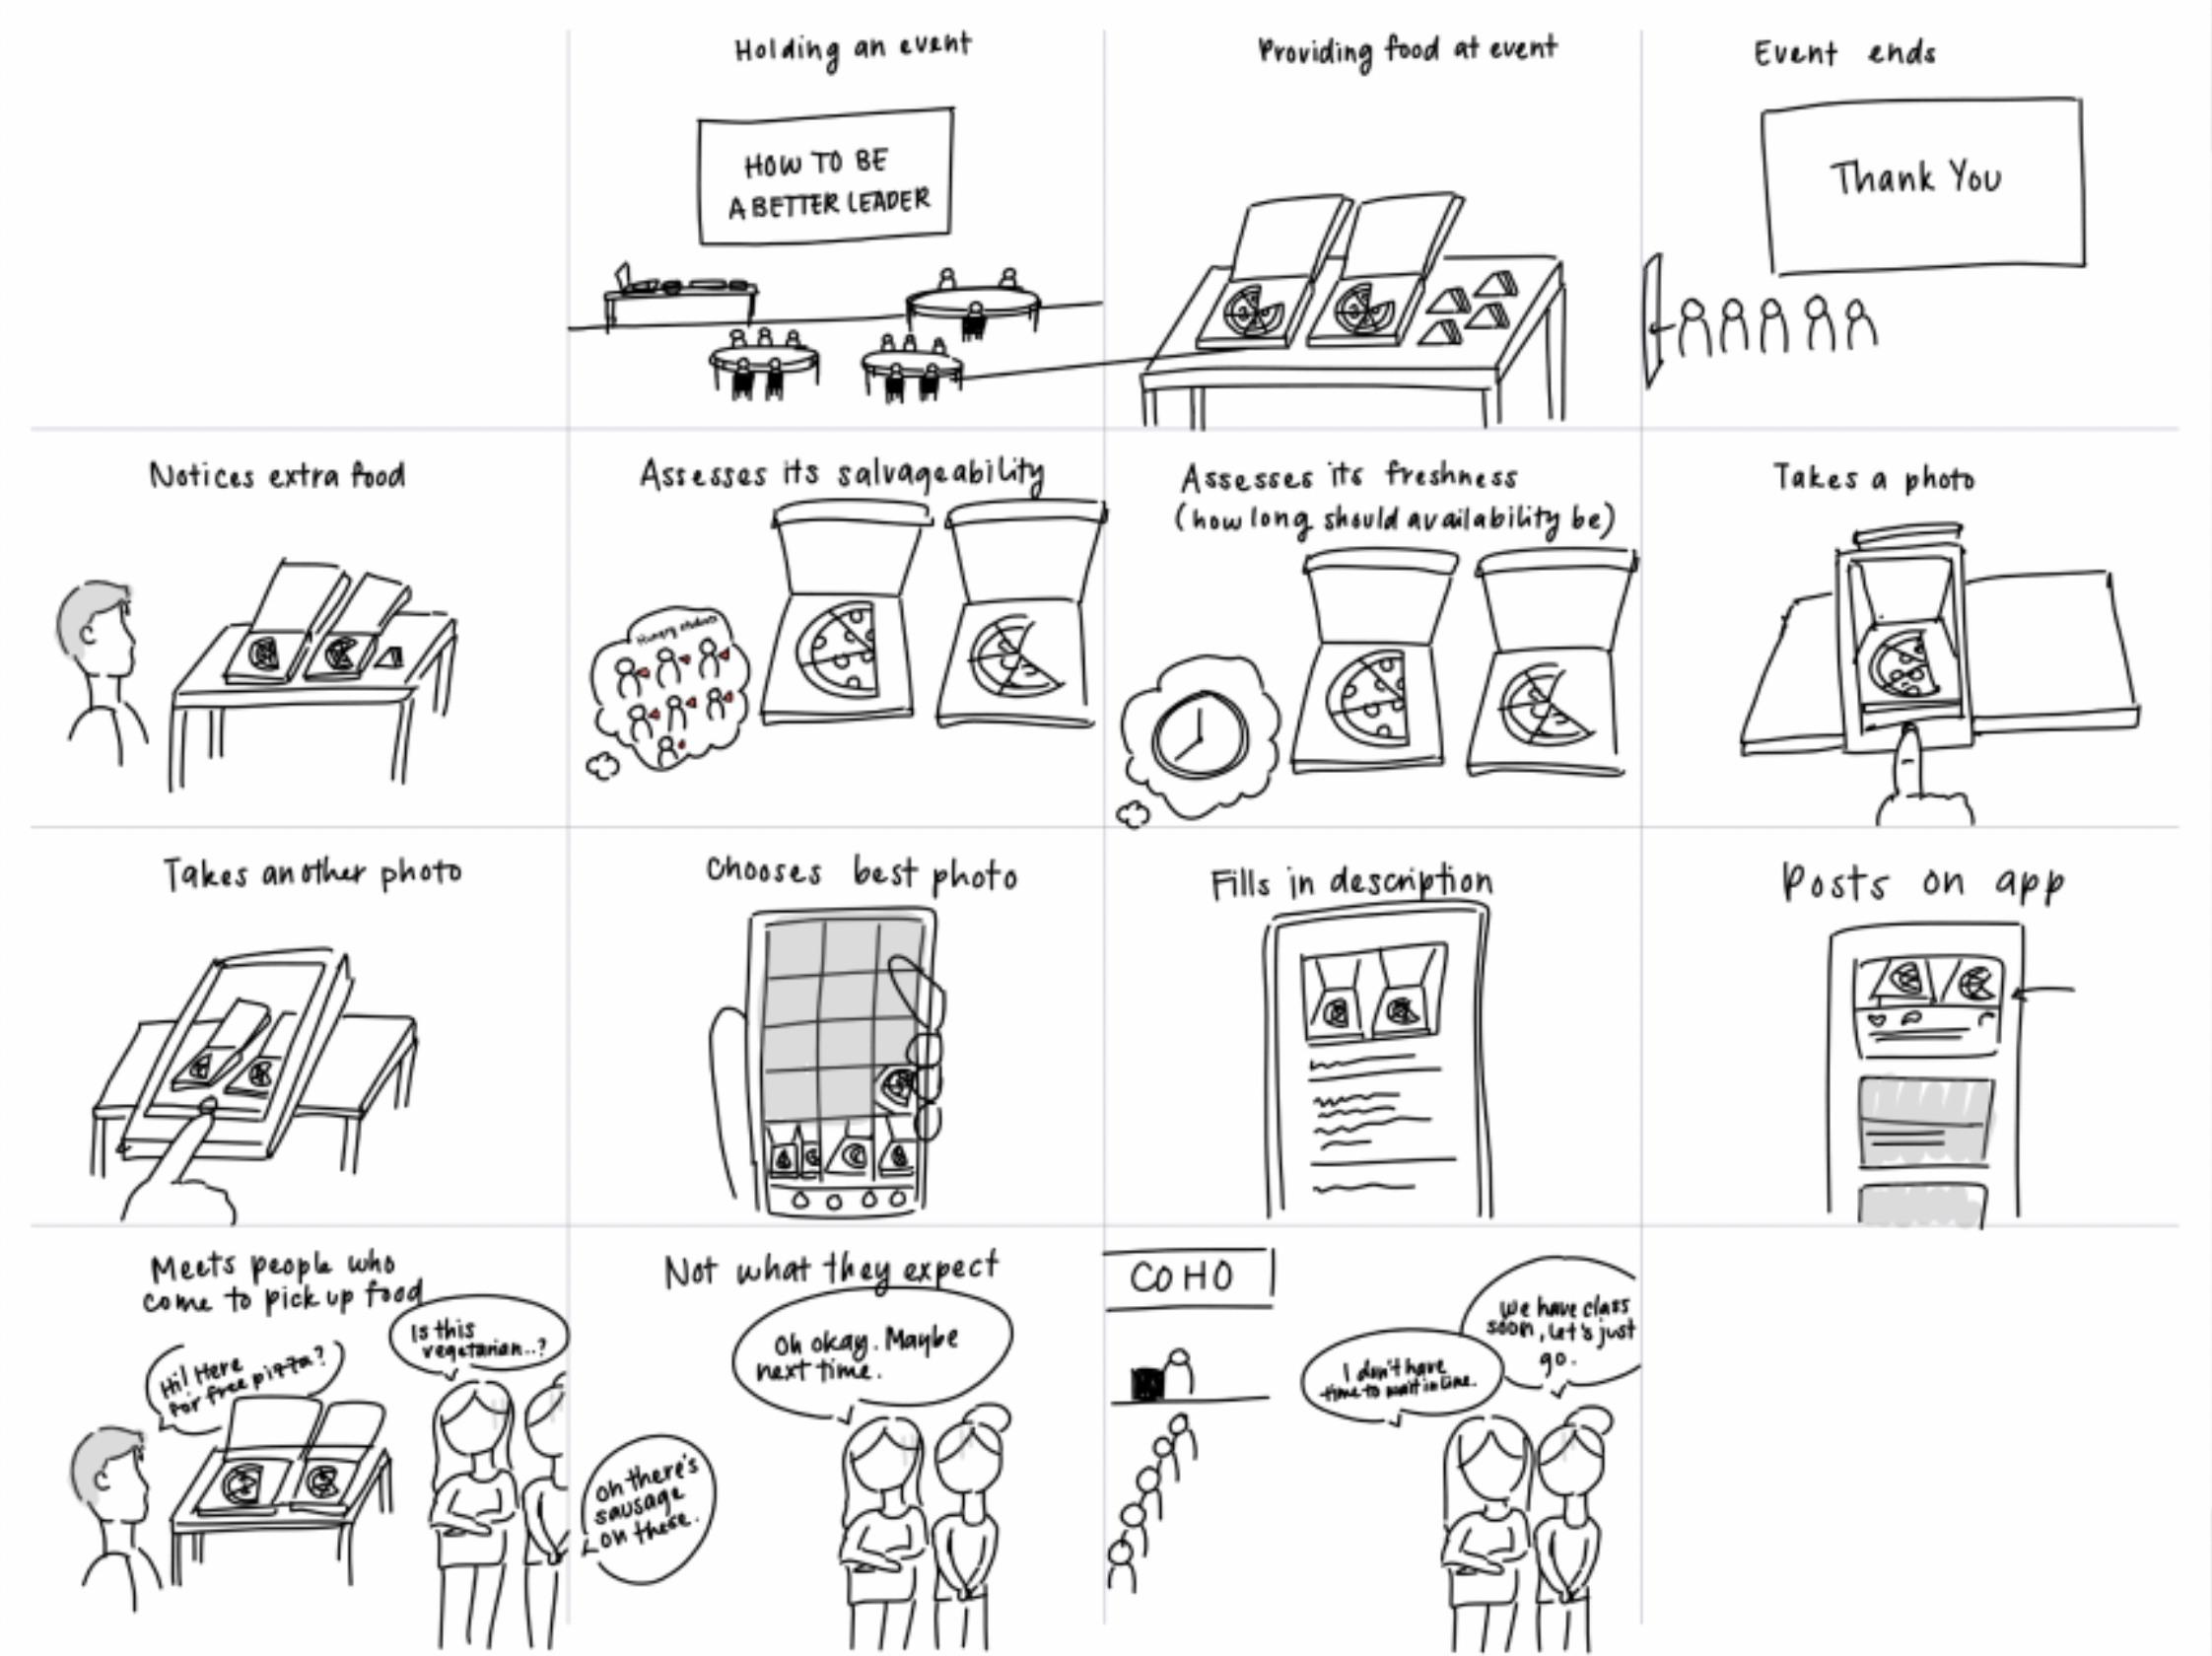 Holding an event
HOW TO BE
A BETTER LEADER
Providing food at event
Event ends
Thank You
Notices extra food
Assesses its salvageability
Hungry students
Assesses its freshness
(how long should availability be)
Takes a photo
Takes another photo
Chooses best photo
Fills in description
Posts on app
Meets people who
come to pick up food
Hi! Here
for free pizza?
Is this
vegetarian..?
Not what they expect
Oh there's
sausage
on these.
Oh okay. Maybe
next time.
COHO
I don't have
time to wait in line.
We have class
soon, let's just
go.